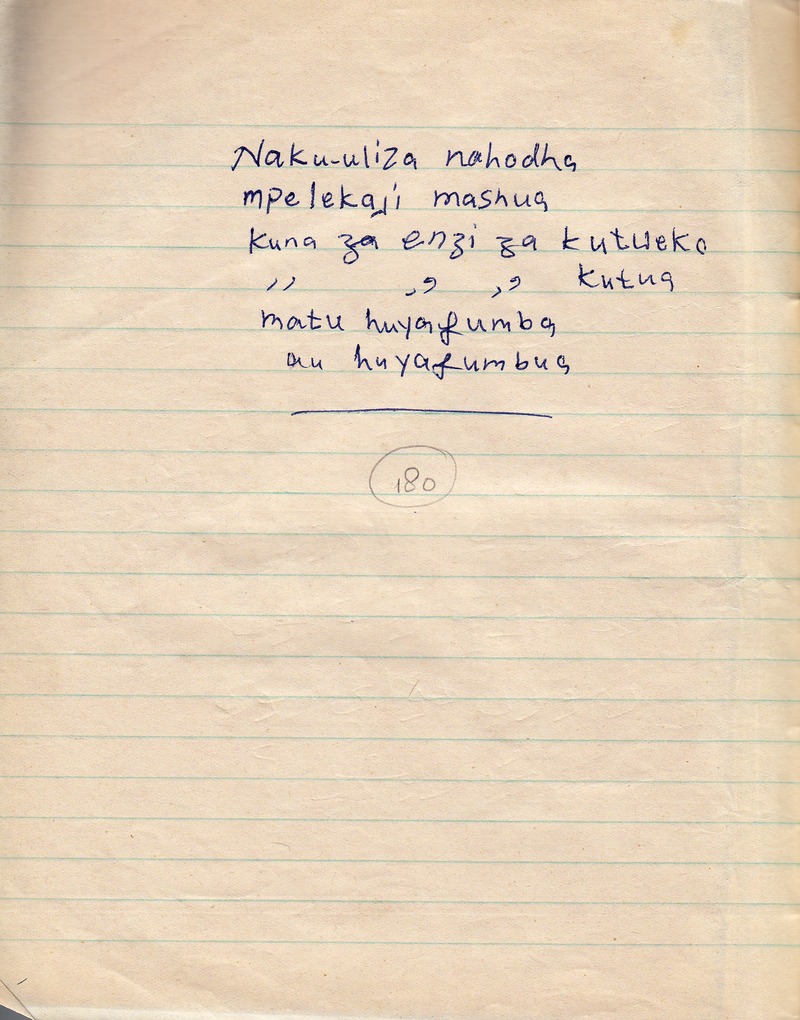 Naku-uliza nahodha
mpelekaji mashua
kuna za enzi za kutweka
,, ,, ,, kutua
matu huyafumba
au huyafumbua
180